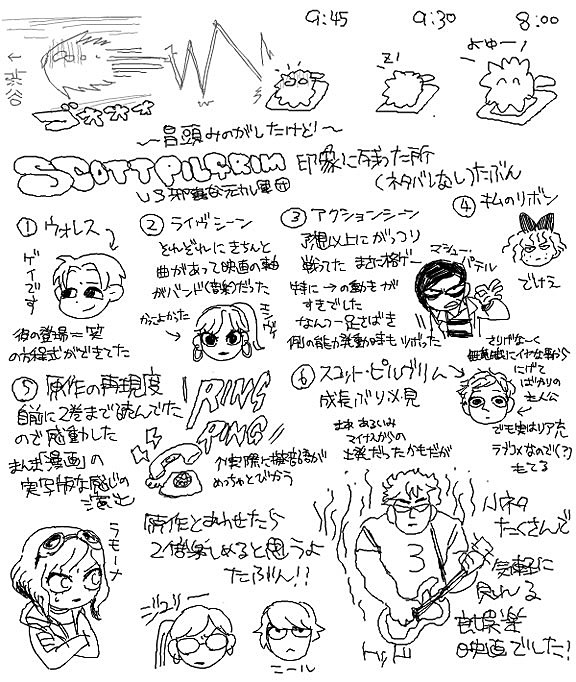 9:45
9:30
8:00
よゆー！
z!
←渋谷
ゴオオオ
〜冒頭みのがしたけど！〜
SCOTT PILGRIM 印象に残った所
VS 邪悪な元カレ軍団
(ネタバレない)たぶん
① ウォレス
ゲイです
彼の登場＝笑
の方程式ができてた
② ライヴシーン
それぞれにきちんと
曲があって映画の軸
がバンド(音楽)だった
かっこよかった
エンヴィ
③ アクションシーン
予想以上にがっつり
戦ってた まさに格ゲー
特に→の動きが
すきでした
なんつー足さばき
例の能力発動時もツボった
マシュー・
パテル
④ キムのリボン
でけえ
⑤ 原作の再現度
自前に2巻まで読んでた
ので感動した
まんま「漫画」の
実写版な感じの
演出
RING
RING!
↑実際に擬音語が
めっちゃとびかう
⑥ スコット・ピルグリム
成長ぶり必見
まあ、あるいみ
マイナスからの
出発だったかもだが
さりげな〜く
無意識にイヤな事から
にげて
ばかりの
主人公
でも実はリア充
ラブコメなので(？)
もてる
ラモーナ
原作とあわせたら
2倍楽しめると思うよ
たぶん！！
ジュリー
ニール
3
トッド
小ネタ
たくさんで
気軽に
見れる
良娯楽
映画でした！